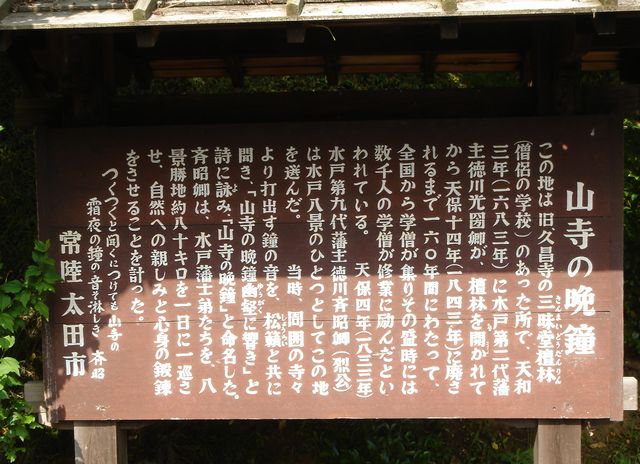 山寺の晩鐘
この地は旧久昌寺の三昧堂檀林
さんまいどうだんりん
(僧侶の学校)のあった所で、天和
三年(一六八三年)に水戸第二代藩
主徳川光圀卿が、檀林を開かれて
から天保十四年(一八四三年)に廃さ
れるまで一六〇年間にわたって、
全国から学僧が集りその盛時には
数千人の学僧が修業に励んだとい
われている。 天保四年(一八三三年)
水戸第九代藩主徳川斉昭卿(烈公)
は水戸八景のひとつとしてこの地
を選んだ。 当時、周囲の寺々
より打出す鐘の音を、松籟と共に
しょうらい
聞き、「山寺の晩鐘幽壑に響き」と
ゆうがく
詩に詠み「山寺の晩鐘」と命名した。
斉昭卿は、水戸藩士弟たちを、八
景勝地約八十キロを一日に一巡さ
せ、自然への親しみと心身の鍛錬
をさせることを計った。
つくつくと聞くにつけても山寺の
霜夜の鐘の音そ淋しき 斉昭
常陸太田市